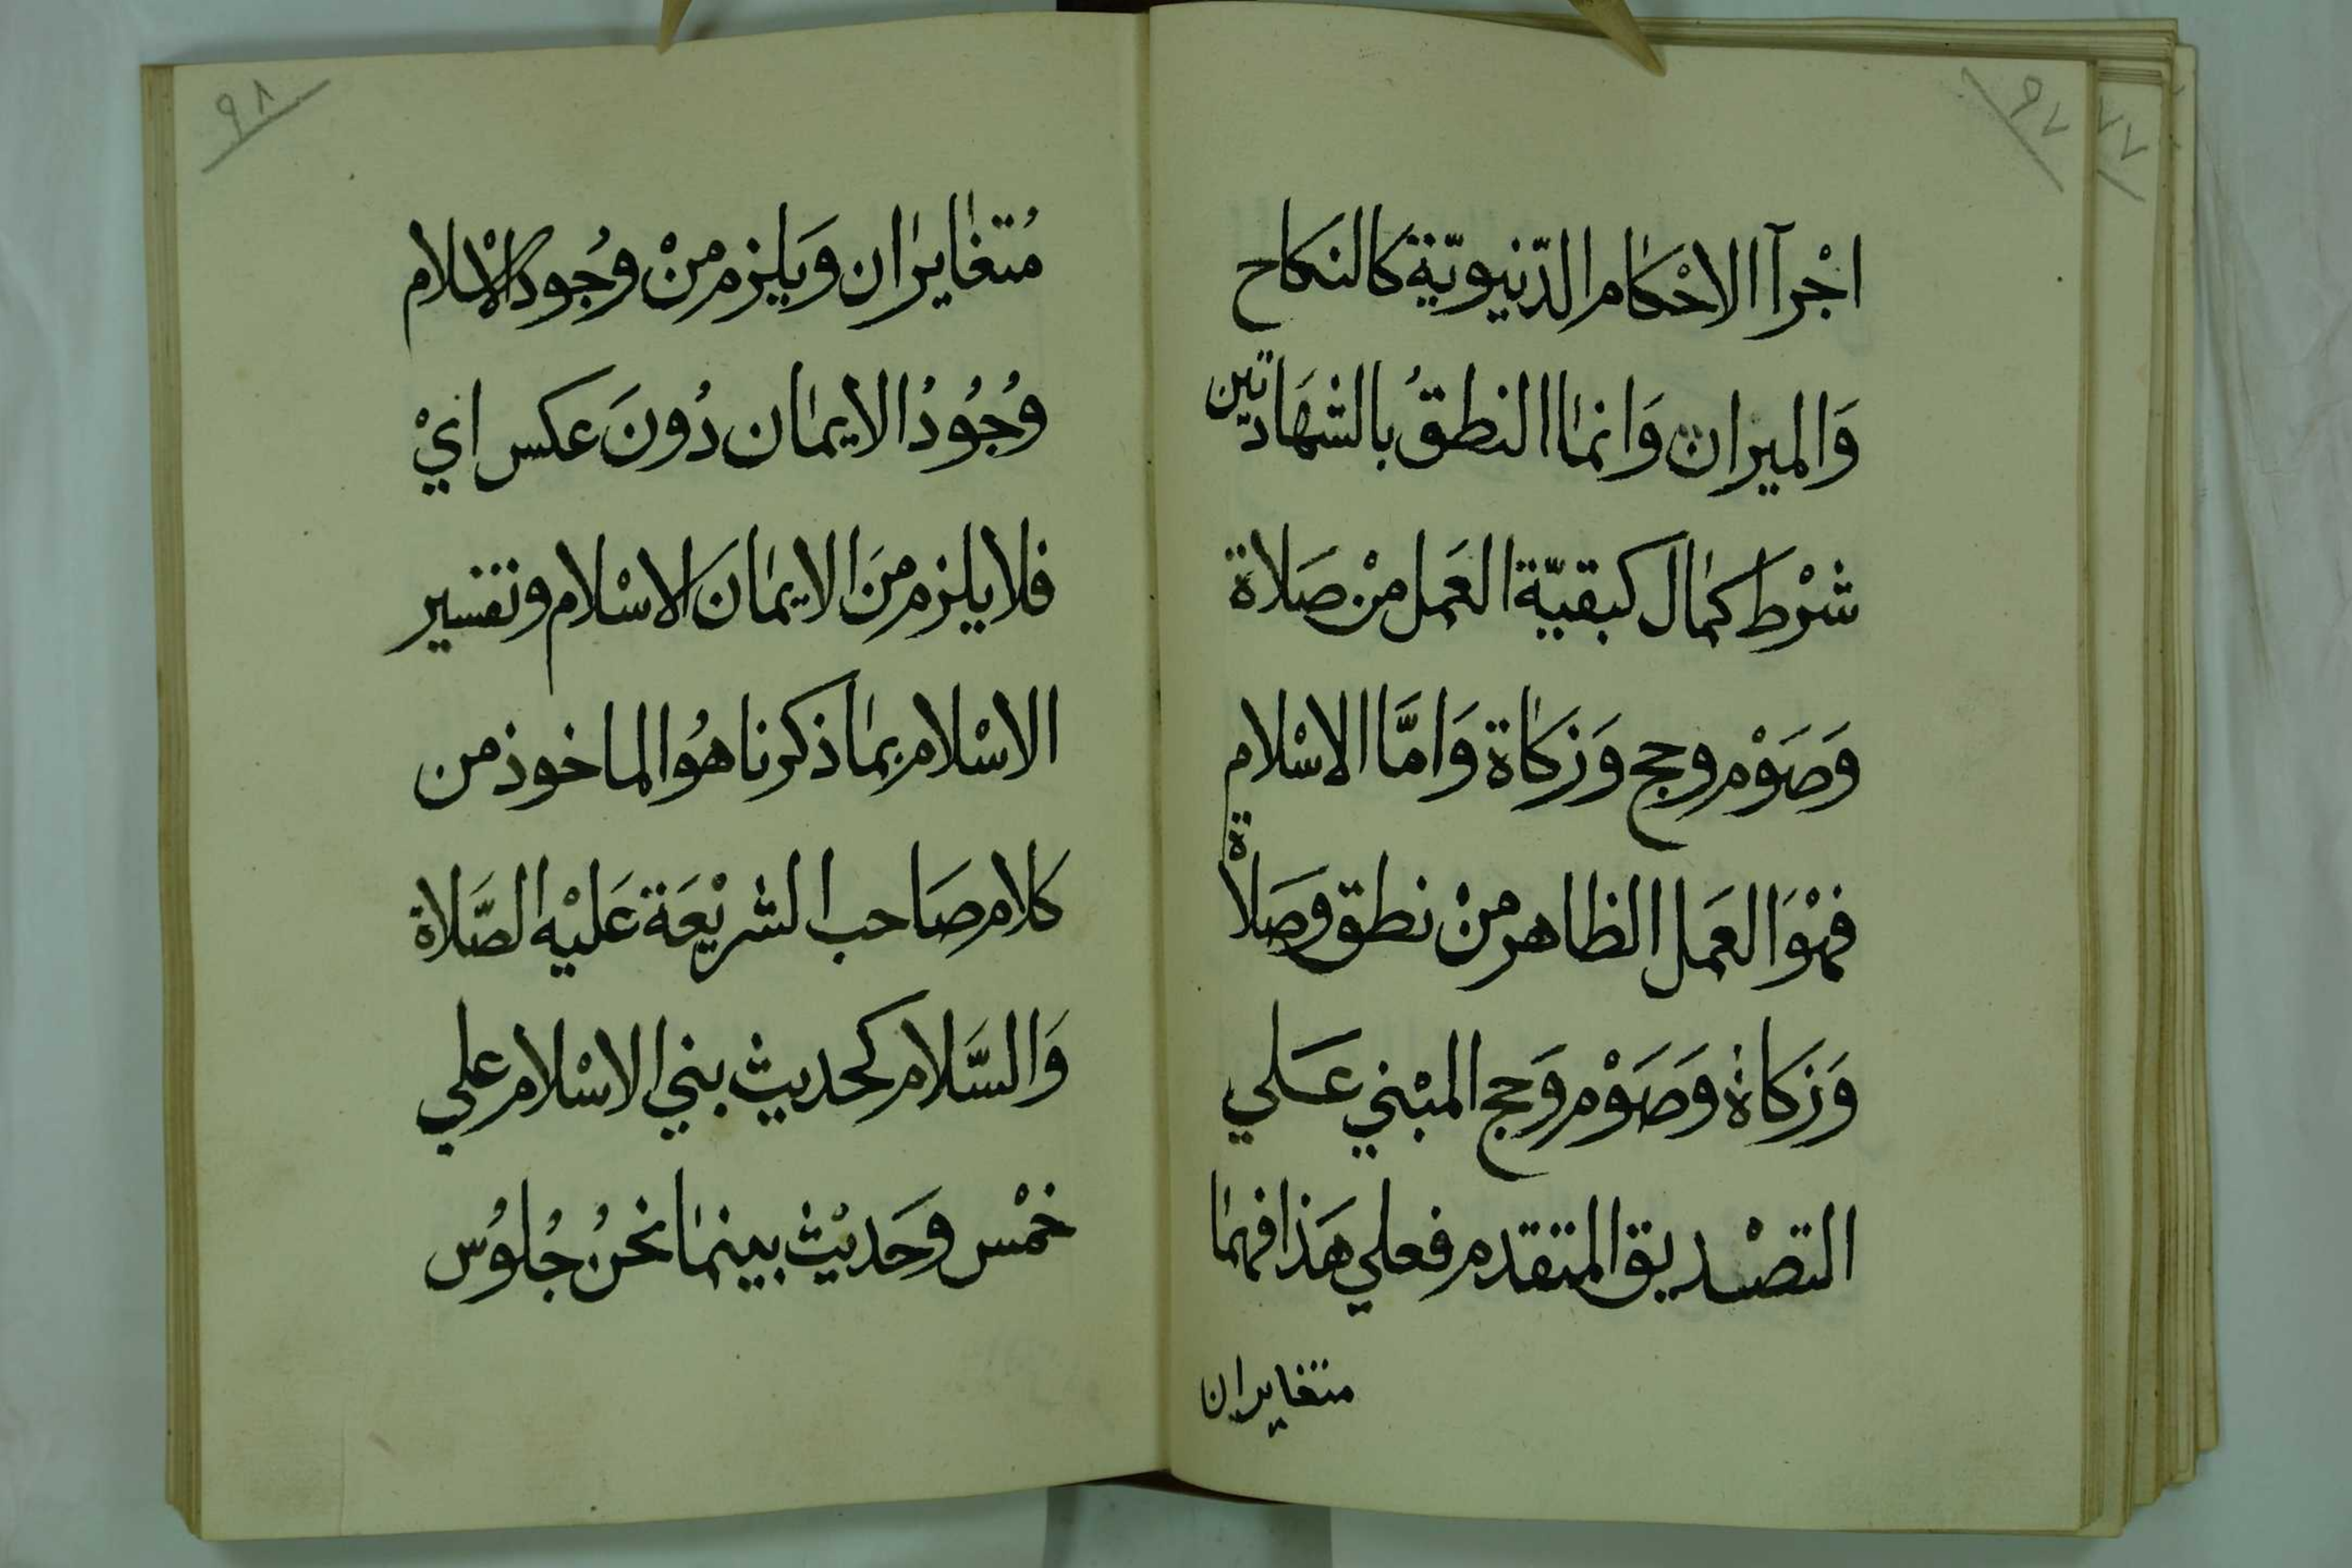 ٩٧
اجْرآ الاحْكام الدّنيويّة كالنكاح
وَالميران وَانما النطقُ بالشهَادتين
شرْط كمال كبقيّة العَمل منْ صَلاة
وَصَوْم وحج وَزكاة وَامَّا الاسْلام
فهْوَ العَمل الظاهر منْ نطق وَصَلاة
وَزكاة وَصَوْم وَحج المبْني عَلي
التصْديق المتقدم فعلي هَذا فهما
متغايران
٩٨
مُتغايران وَيلزم منْ وجُود الاسْلام
وجُوُدُ الايمان دُونَ عكس ايْ
فلا يلزم منَ الايمانَ الاسْلام وتفسير
الاسْلام بما ذكرنا هوُ الماخوذ من
كلام صَاحب الشريْعَة عَليْه الصَّلاة
وَالسَّلام كحديث بني الاسْلام علي
خمْس وَحَديْث بينما نحنُ جُلوُس
٧٧